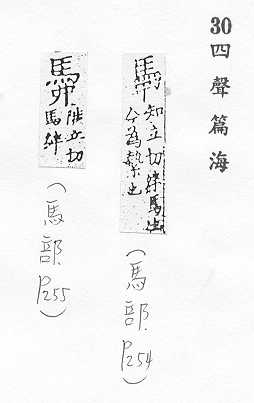 30四聲篇海
知立切絆馬也
今為縶也
(馬部 P254)
陟立切
馬絆
(馬部 P255)